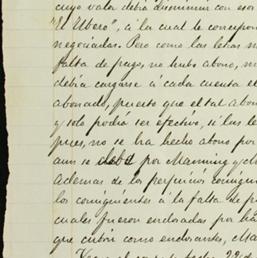 cuyo valor debía disminuir con esos
"El Ebero", á la cual le correspon
negociadas. Pero como las letras n
falta de pago, no hubo abono, n
debía cargarse á cada cuenta el
abonado, puesto que el tal abon
y solo podría ser efectivo, si las le
pues, no se ha hecho abono por
aun se debe por Manning y
ademas de los perjuicios consigu
los consiguientes á la falta de p
cuales fueron endosadas por
que cubrir como endosantes, Ma